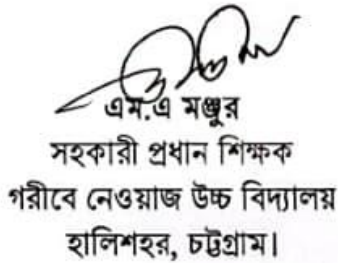 এম.এ মঞ্জুর
সহকারী প্রধান শিক্ষক
গরীবে নেওয়াজ উচ্চ বিদ্যালয়
হালিশহর, চট্টগ্রাম।